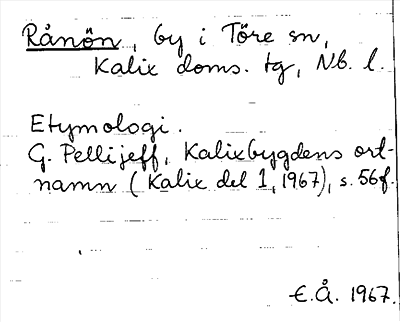 Rånön, by i Töre sn,
Kalix doms. tg, Nb. l.
Etymologi.
G. Pellijeff, Kalixbygdens ort-
namn (Kalix del 1, 1967), s. 56f.
E.Å. 1967.